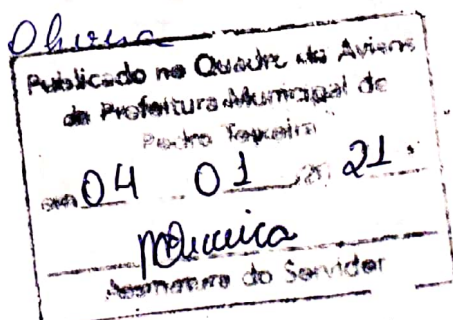 Publicado no Quadro de Avisos
da Prefeitura Municipal de
Pedro Teixeira
em 04 01 21
Assinatura do Servidor